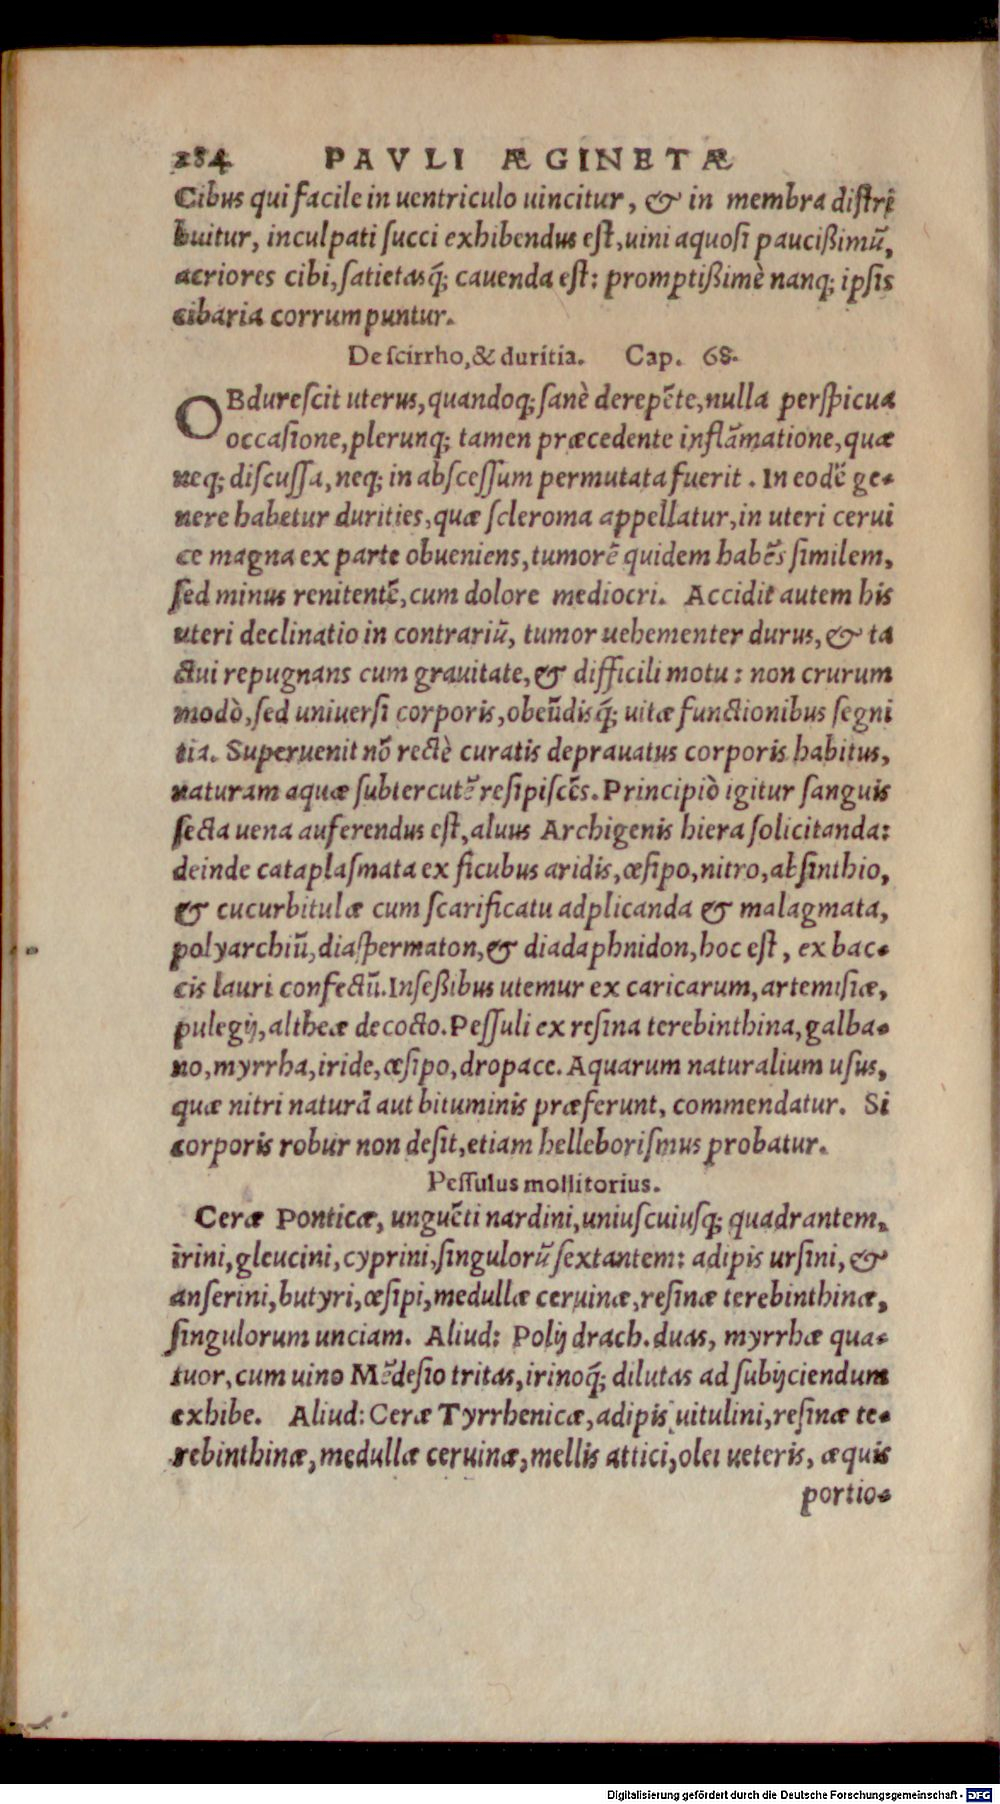 284 PAVLI ÆGINETÆ
Cibus qui facile in uentriculo uincitur, & in membra distri
buitur, inculpati succi exhibendus est, uini aquosi paucißimũ,
acriores cibi, satietasq́; cauenda est: promptißimè nanq; ipsis
cibaria corrumpuntur.
De scirrho, & duritia. Cap. 68.
OBdurescit uterus, quandoq; sanè derepẽte, nulla perspicua
occasione, plerunq; tamen præcedente inflãmatione, quæ
neq; discussa, neq; in abscessum permutata fuerit. In eodẽ ge-
nere habetur durities, quæ scleroma appellatur, in uteri cerui
ce magna ex parte obueniens, tumorẽ quidem habẽs similem,
sed minus renitentẽ, cum dolore mediocri. Accidit autem his
uteri declinatio in contrariũ, tumor uehementer durus, & ta
ctui repugnans cum grauitate, & difficili motu: non crurum
modò, sed uniuersi corporis, obeũdisq́; uitæ functionibus segni
tia. Superuenit nõ rectè curatis deprauatus corporis habitus,
naturam aquæ subter cutẽ resipiscẽs. Principiò igitur sanguis
secta uena auferendus est, aluus Archigenis hiera solicitanda:
deinde cataplasmata ex ficubus aridis, œsipo, nitro, absinthio,
& cucurbitulæ cum scarificatu adplicanda & malagmata,
polyarchiũ, diaspermaton, & diadaphnidon, hoc est, ex bac-
cis lauri confectũ. Inseßibus utemur ex caricarum, artemisiæ,
pulegij, altheæ decocto. Pessuli ex resina terebinthina, galba-
no, myrrha, iride, œsipo, dropace. Aquarum naturalium usus,
quæ nitri naturã aut bituminis præferunt, commendatur. Si
corporis robur non desit, etiam helleborismus probatur.
Pessulus mollitorius.
Ceræ Ponticæ, unguẽti nardini, uniuscuiusq; quadrantem,
irini, gleucini, cyprini, singulorũ sextantem: adipis ursini, &
anserini, butyri, œsipi, medullæ ceruinæ, resinæ terebinthinæ,
singulorum unciam. Aliud: Polij drach. duas, myrrhæ qua-
tuor, cum uino Mẽdesio tritas, irinoq́; dilutas ad subijciendum
exhibe. Aliud: Ceræ Tyrrhenicæ, adipis uitulini, resinæ te-
rebinthinæ, medullæ ceruinæ, mellis attici, olei ueteris, æquis
portio-
Digitalisierung gefördert durch die Deutsche Forschungsgemeinschaft - DFG